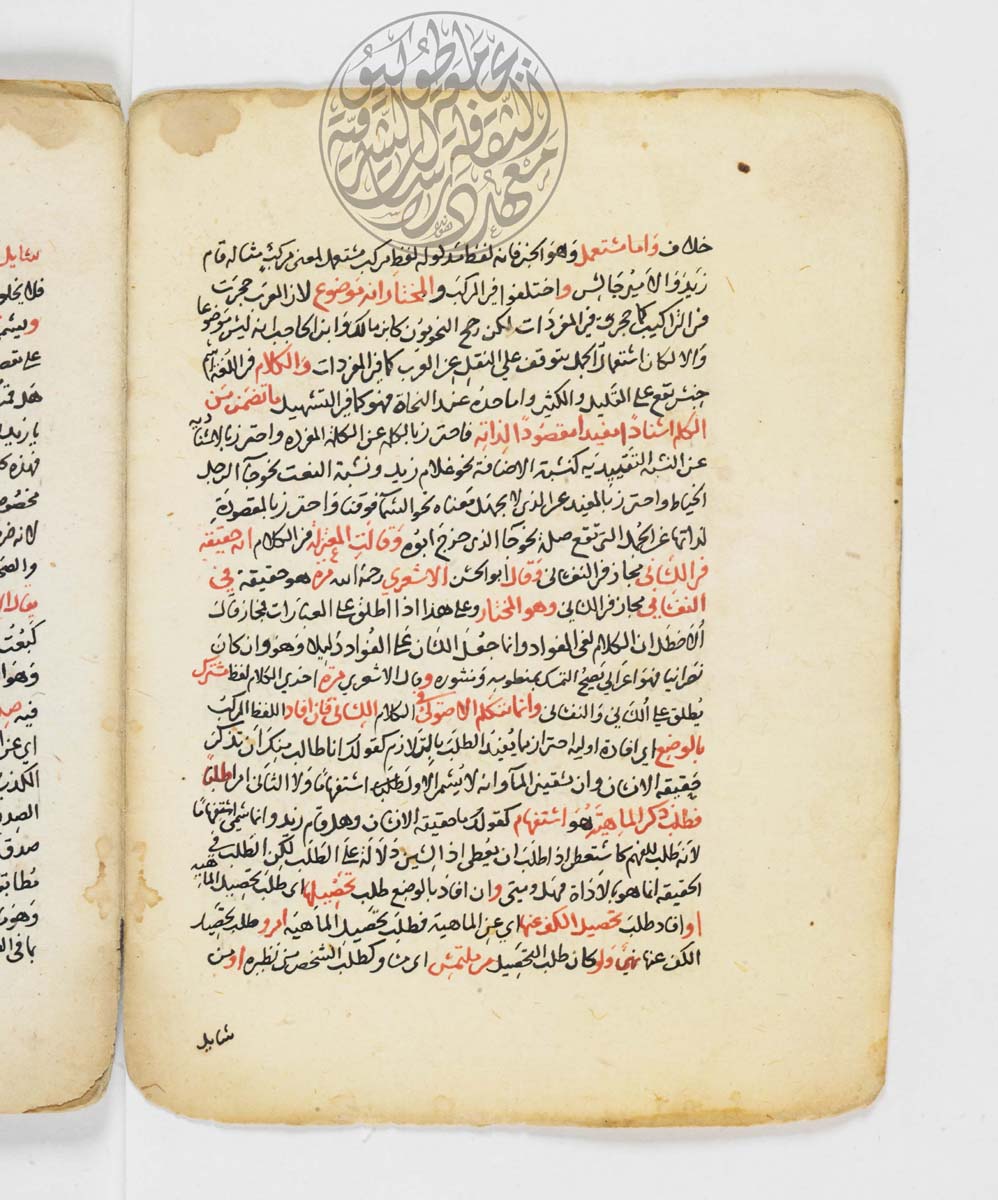 خلاف واما مستعمل وهو الخبر فانه لفظ مدلوله لفظ مركب مستعمل لمعنى مركب مثاله قام
زيد والامير جالس واختلفوا في المركب والمختار انه موضوع لان العرب حجرت
في التراكيب كما حجرت في المفردات لكن رجح النحويون كابن مالك وابن الحاجب انه ليس موضوعا
والا لكان استعمال الجمل يتوقف على النقل عن العرب كما في المفردات والكلام في اللغة اسم
جنس يقع على القليل والكثير واما حده عند النحاة فهو كما في التسهيل ما تضمن من
الكلم اسنادا مفيدا مقصودا لذاته فاحترز بالكلم عن الكلمة المفردة واحترز بالاسناد
عن النسبة التقييديه كنسبة الاضافة نحو غلام زيد ونسبة النعت نحو جآ الرجل
الخياط واحترز بالمفيد عن الذي لا يجهل معناه نحو السمآ فوقنا واحترز بالمقصودة
لذاتها عن الجمل التي تقع صلة نحو جآ الذي خرج ابوه وقالت المعتزلة في الكلام انه حقيقة
في اللساني مجاز في النفساني وقال ابو الحسن الاشعري رحمه الله مرة هو حقيقة في
النفساني مجاز في اللساني وهو المختار وعلى هذا اذا اطلق على العبارات فمجاز قال
الاخطل ان الكلام لفي الفواد وانما جعل اللسان على الفواد دليلا وهو وان كان
نصرانيا فهو اعرابي يصح التمسك بمنظومه ومنثوره وقال الاشعري مرة اخرى الكلام لفظ مشترك
يطلق على اللساني والنفساني وانما يتكلم الاصولي في الكلام اللساني فان افاد اللفظ المركب
بالوضع اي افادة اوليه احتراز ما يفيد الطلب باللازم كقولك انا طالب منك ان تذكر
حقيقة الانسان وان تسقيني المآ وانه لا يسمى الاول استفهاما ولا الثاني امرا طلبا
فطلب ذكر الماهية هو استفهام كقولك ما حقيقة الانسان وهل قام زيد وانما سمي استفهاما
لانه طلب للفهم كاستعطى اذا طلب ان يعطى اذ السين دلالة على الطلب لكن الطلب في
الحقيقه انما هو بالاداة فهل ومتى وان افاد بالوضع طلب تحصيلها اي طلب تحصيل الماهيه
او افاد طلب تحصيل الكف عنها اي عن الماهية فطلب تحصيل الماهية امر وطلب تحصيل
الكف عنها نهي ولو كان طلب التحصيل من ملتمس اي مساو كطلب الشخص من نظيره او من
سايل